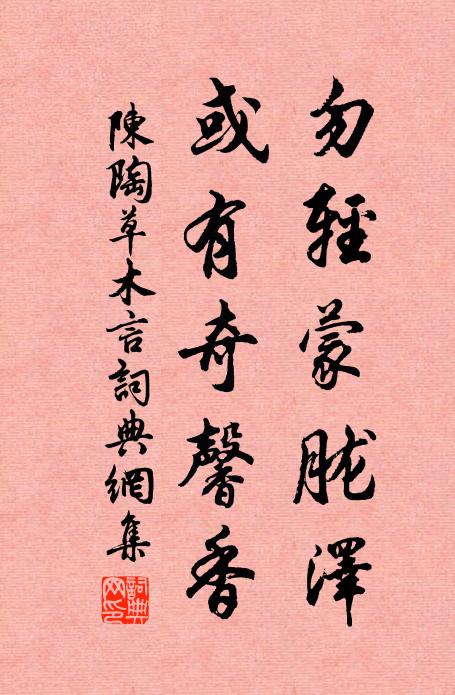 勿輕蒙朧澤
或有奇馨香
陳陶草木言詞典網集
詞典网印